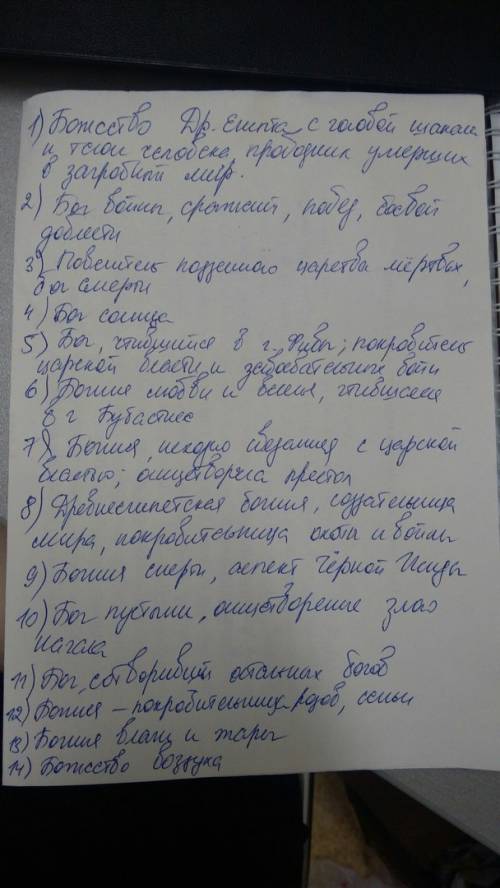 1) Божество Др. Египта с головой шакала
и телом человека, проводник умерших
в загробный мир.
2) Бог войны, сражений, побед, боевой
доблести
3) Повелитель подземного царства мёртвых,
бог смерти
4) Бог солнца
5) Бог, чтившийся в г. Фивы; покровитель
царской власти и завоевательных войн
6) Богиня любви и веселья, чтившаяся
в г Бубастис
7) Богиня, искорно связанная с царской
властью; олицетворяла престол
8) Древнеегипетская богиня, создательница
мира, покровительница охоты и войны
9) Богиня смерти, аспект Чёрной Исиды
10) Бог пустыни, олицетворение злого
начала
11) Бог, сотворивший остальных богов
12) Богиня - покровительница родов, семьи
13) Богиня влаги и жары
14) Божество воздуха